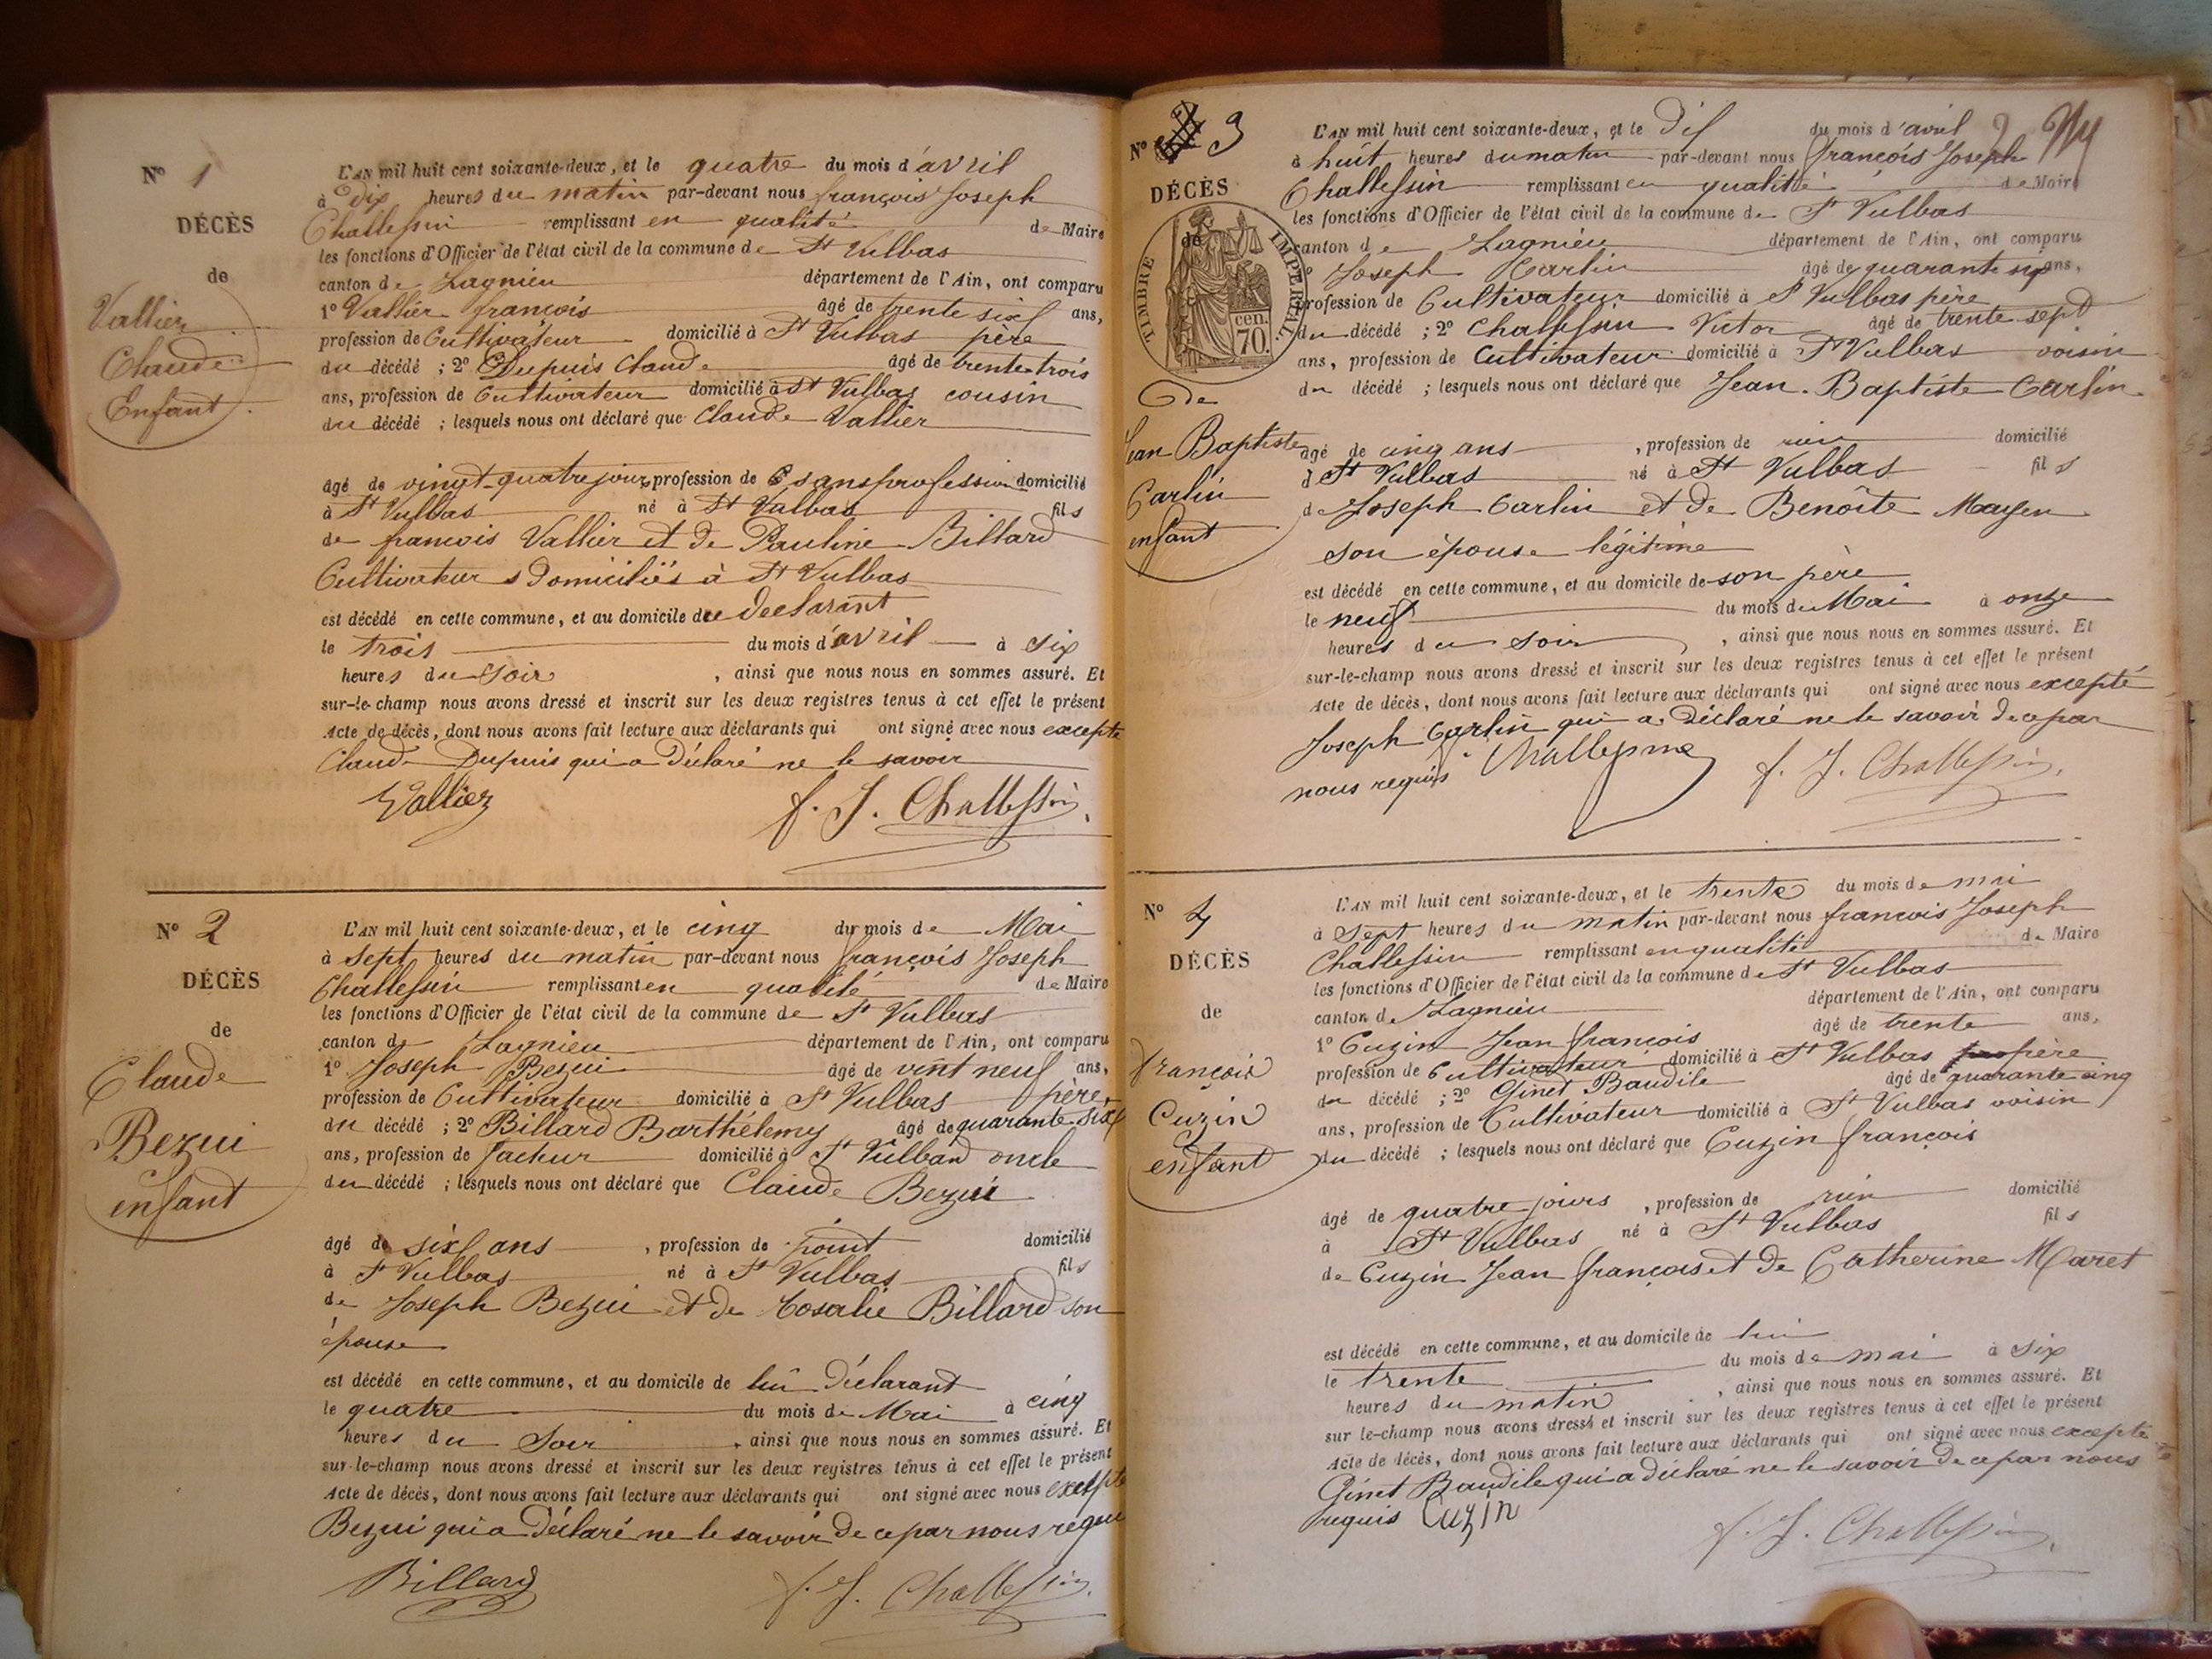 N° 1
DÉCÈS
de
Vallier
Claude
Enfant
L'AN mil huit cent soixante-deux, et le quatre du mois d'avril
à Dix heures du matin par-devant nous françois Joseph
Challessin remplissant en qualité de Maire
les fonctions d'Officier de l'état civil de la commune de St Vulbas
canton de Lagnieu département de l'Ain, ont comparu
1° Vallier françois âgé de trente six ans,
profession de Cultivateur domicilié à St Vulbas père
du décédé ; 2° Dupuis Claude âgé de trente trois
ans, profession de Cultivateur domicilié à St Vulbas cousin
du décédé ; lesquels nous ont déclaré que Claude Vallier
âgé de vingt-quatre jours, profession de sans profession domicilié
à St Vulbas né à St Vulbas fils
de francois Vallier et de Pauline Billard
Cultivateurs Domiciliés à St Vulbas
est décédé en cette commune, et au domicile du declarant
le trois du mois d'avril à six
heures du soir, ainsi que nous nous en sommes assuré. Et
sur-le-champ nous avons dressé et inscrit sur les deux registres tenus à cet effet le présent
Acte de décès, dont nous avons fait lecture aux déclarants qui ont signé avec nous excepté
Claude Dupuis qui a Déclaré ne le savoir
Vallier f. J. Challessin
N° 2
DÉCÈS
de
Claude
Bezui
enfant
L'AN mil huit cent soixante-deux, et le cinq du mois de Mai
à sept heures du matin par-devant nous françois Joseph
Challessin remplissant en qualité de Maire
les fonctions d'Officier de l'état civil de la commune de St Vulbas
canton de Lagnieu département de l'Ain, ont comparu
1° Joseph Bezui âgé de vint neuf ans,
profession de Cultivateur domicilié à St Vulbas père
du décédé ; 2° Billard Barthélemy âgé de quarante six
ans, profession de facteur domicilié à St Vulbas oncle
du décédé ; lesquels nous ont déclaré que Claude Bezui
âgé de six ans, profession de point domicilié
à St Vulbas né à St Vulbas fils
de Joseph Bezui et de Rosalie Billard son
épouse
est décédé en cette commune, et au domicile de lui Déclarant
le quatre du mois de Mai à cinq
heures du Soir, ainsi que nous nous en sommes assuré. Et
sur-le-champ nous avons dressé et inscrit sur les deux registres tenus à cet effet le présent
Acte de décès, dont nous avons fait lecture aux déclarants qui ont signé avec nous excepté
Bezui qui a Déclaré ne le savoir De ce par nous requis
Billard f. J. Challessin
N° 3
DÉCÈS
de
TIMBRE IMPÉRIAL
70 cen.
De
Jean Baptiste
Carlin
enfant
L'AN mil huit cent soixante-deux, et le Dix du mois d'avril
à huit heures du matin par-devant nous françois Joseph
Challessin remplissant en qualité de Maire
les fonctions d'Officier de l'état civil de la commune de St Vulbas
canton de Lagnieu département de l'Ain, ont comparu
1° Joseph Carlin âgé de quarante six ans,
profession de Cultivateur domicilié à St Vulbas père
du décédé ; 2° Challessin Victor âgé de trente sept
ans, profession de Cultivateur domicilié à St Vulbas voisin
du décédé ; lesquels nous ont déclaré que Jean-Baptiste Carlin
âgé de cinq ans, profession de rien domicilié
à St Vulbas né à St Vulbas fils
de Joseph Carlin et de Benoîte Mayen
son épouse légitime
est décédé en cette commune, et au domicile de son père
le neuf du mois de Mai à onze
heures du soir, ainsi que nous nous en sommes assuré. Et
sur-le-champ nous avons dressé et inscrit sur les deux registres tenus à cet effet le présent
Acte de décès, dont nous avons fait lecture aux déclarants qui ont signé avec nous excepté
Joseph Carlin qui a Déclaré ne le savoir de ce par
nous requis f. J. Challessin
N° 4
DÉCÈS
de
françois
Cuzin
enfant
L'AN mil huit cent soixante-deux, et le trente du mois de mai
à sept heures du matin par-devant nous francois Joseph
Challessin remplissant en qualité de Maire
les fonctions d'Officier de l'état civil de la commune de St Vulbas
canton de Lagnieu département de l'Ain, ont comparu
1° Cuzin Jean françois âgé de trente ans,
profession de Cultivateur domicilié à St Vulbas père
du décédé ; 2° Ginet Baudile âgé de quarante cinq
ans, profession de Cultivateur domicilié à St Vulbas voisin
du décédé ; lesquels nous ont déclaré que Cuzin françois
âgé de quatre jours, profession de rien domicilié
à St Vulbas né à St Vulbas fils
de Cuzin Jean françois et de Catherine Maret
est décédé en cette commune, et au domicile de lui
le trente du mois de mai à six
heures du matin, ainsi que nous nous en sommes assuré. Et
sur-le-champ nous avons dressé et inscrit sur les deux registres tenus à cet effet le présent
Acte de décès, dont nous avons fait lecture aux déclarants qui ont signé avec nous excepté
Ginet Baudile qui a déclaré ne le savoir De ce par nous
requis Cuzin
f. J. Challessin